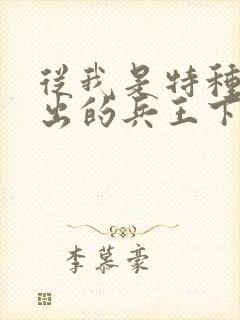 從我是特種
出的兵王下
李慕豪